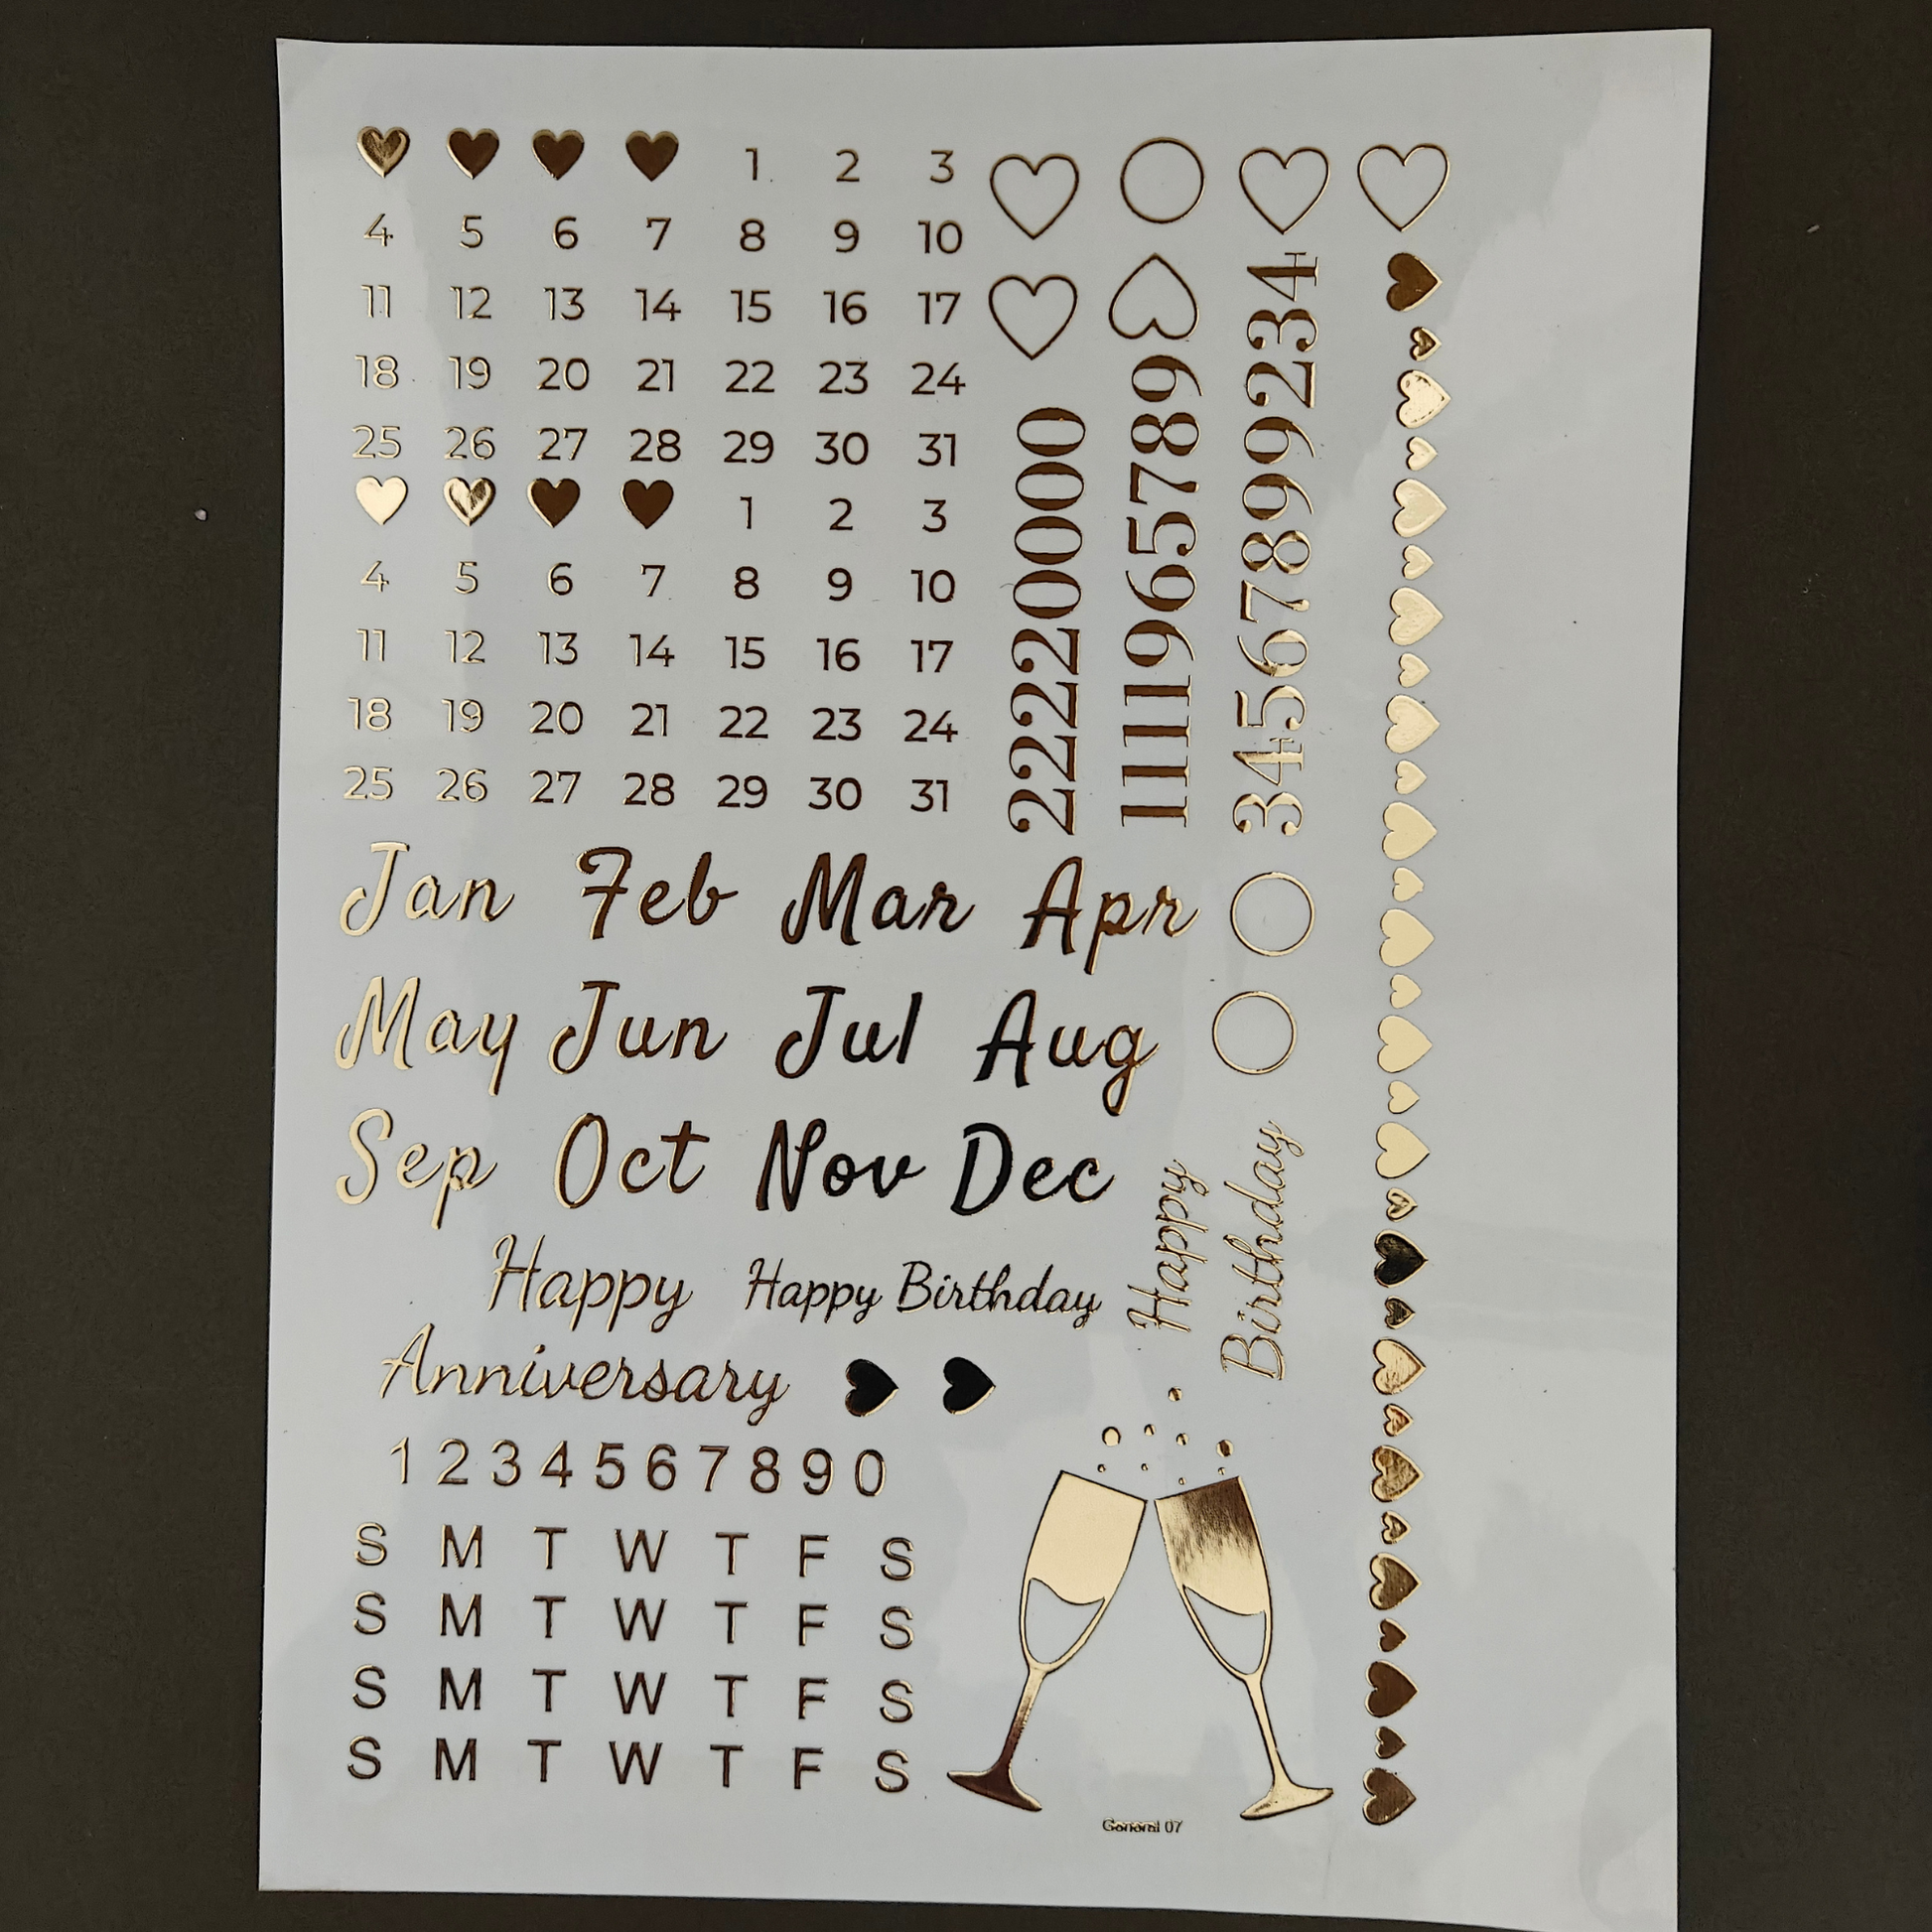 1 2 3
4 5 6 7 8 9 10
11 12 13 14 15 16 17
18 19 20 21 22 23 24
25 26 27 28 29 30 31
1 2 3
4 5 6 7 8 9 10
11 12 13 14 15 16 17
18 19 20 21 22 23 24
25 26 27 28 29 30 31
22220000
1111965789
345678999234
Jan Feb Mar Apr
May Jun Jul Aug
Sep Oct Nov Dec
Happy
Anniversary
Happy Birthday
Happy
Birthday
1 2 3 4 5 6 7 8 9 0
S M T W T F S
S M T W T F S
S M T W T F S
S M T W T F S
General 07